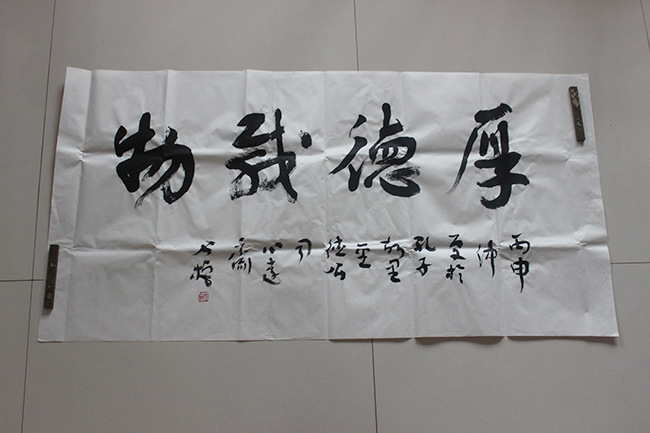 厚德载物
丙申
仲
夏於
孔子
故里
至
德公
司
心遠